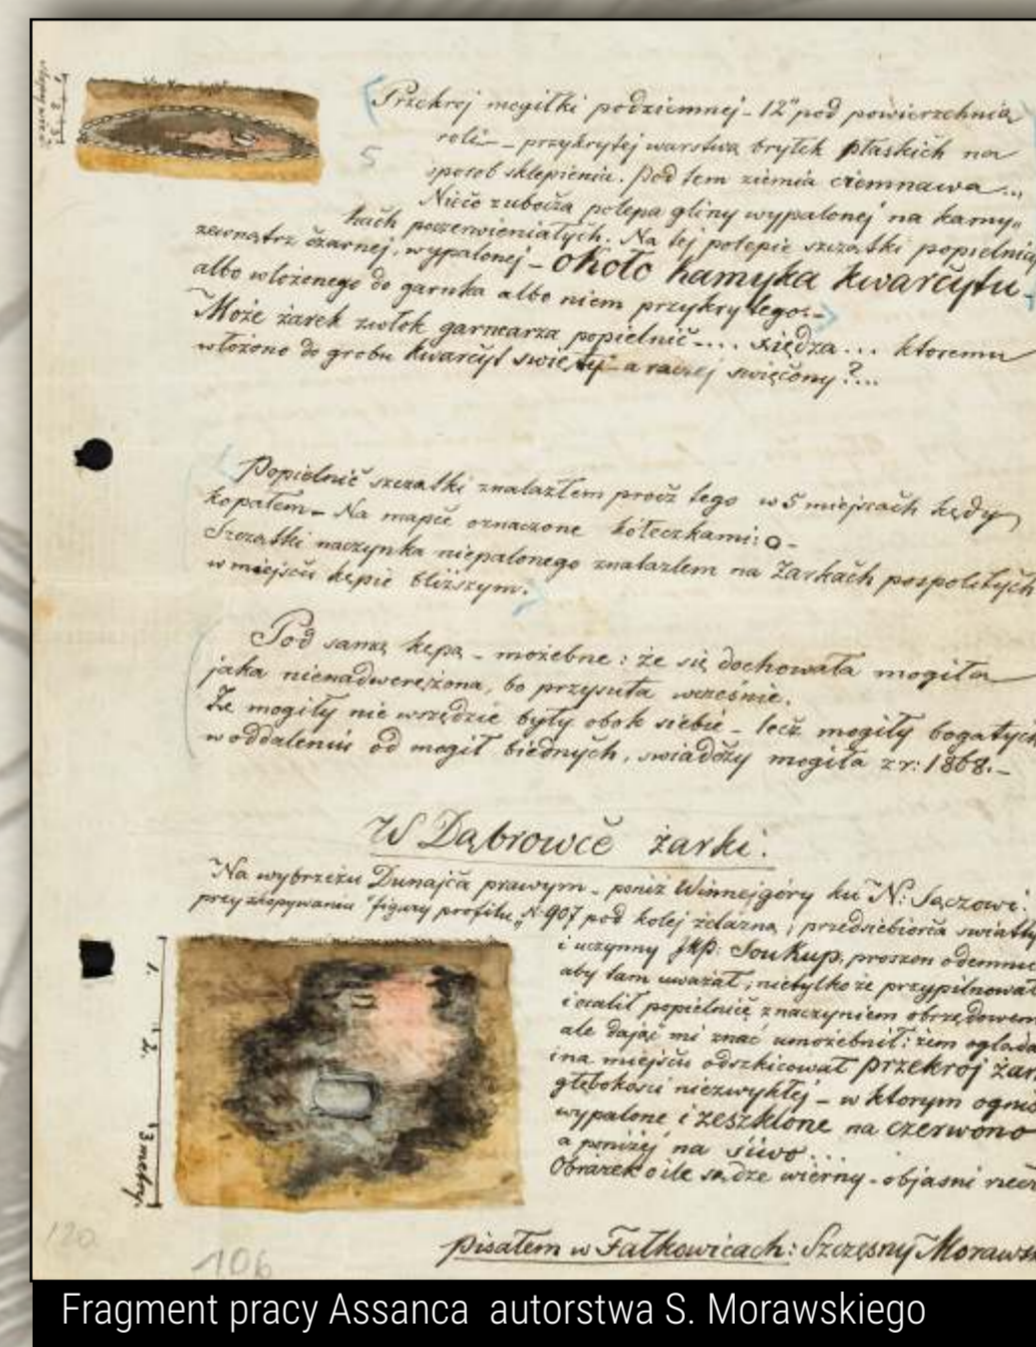 Przekroj mogiłki podziemnej - 12" pod powierzchnią
roli - przykrytej warstwą bryłek płaskich na
sposob sklepienia. Pod tem ziemia ciemnawa...
Nieco zuboża polepa gliny wypalonej na kamy„
kach poczerwieniałych. Na tej polepie szczątki popielnicy
zewnątrz czarnej, wypalonej - około kamyka kwarcytu -
albo włożonego do garnka albo niem przykrytego. -
Może żarek zwłok garncarza popielnic .... xiędza ... ktoremu
włożono do grobu kwarcyt święty - a raczej święcony?...
Popielnic szczątki znalazłem procz tego w 5 miejscach kędy
kopałem - Na mapie oznaczone kołeczkami: o -
Szczątki naczynka niepalonego znalazłem na Żarkach pospolitych
w miejscu kępie bliższym.
Pod samą kępą - możebne: że się dochowała mogiła
jaka nienadwerężona, bo przysuta wcześnie.
Że mogiły nie wszędzie były obok siebie - lecz mogiły bogatych
w oddaleniu od mogił biednych, swiadczy mogiła z r: 1868. -
W Dąbrowce żarki.
Na wybrzeżu Dunajca prawym - poniż Winnejgóry ku N: Sączowi:
przy skopywaniu "figury profilu„ N: 907 pod kolej żelazna, przedsiębiorca swiatły
i uczynny JKP: Soukup, proszon odemnie
aby tam uważał, nietylko że przypilnował
i ocalił popielnicę z naczyniem obrzędowem
ale dając mi znać umożebnił: żem oglądał
i na miejscu odszkicował przekrój żar
głębokości niezwykłej - w ktorym ognis
wypalone i zeszklone na czerwono
a poniżej na siwo...
Obrazek o ile sądzę wierny - objasni rzecz
1. 2. 3 metry.
5
120
106
Pisałem w Fałkowicach: Szczęsny Morawski
Fragment pracy Assanca autorstwa S. Morawskiego